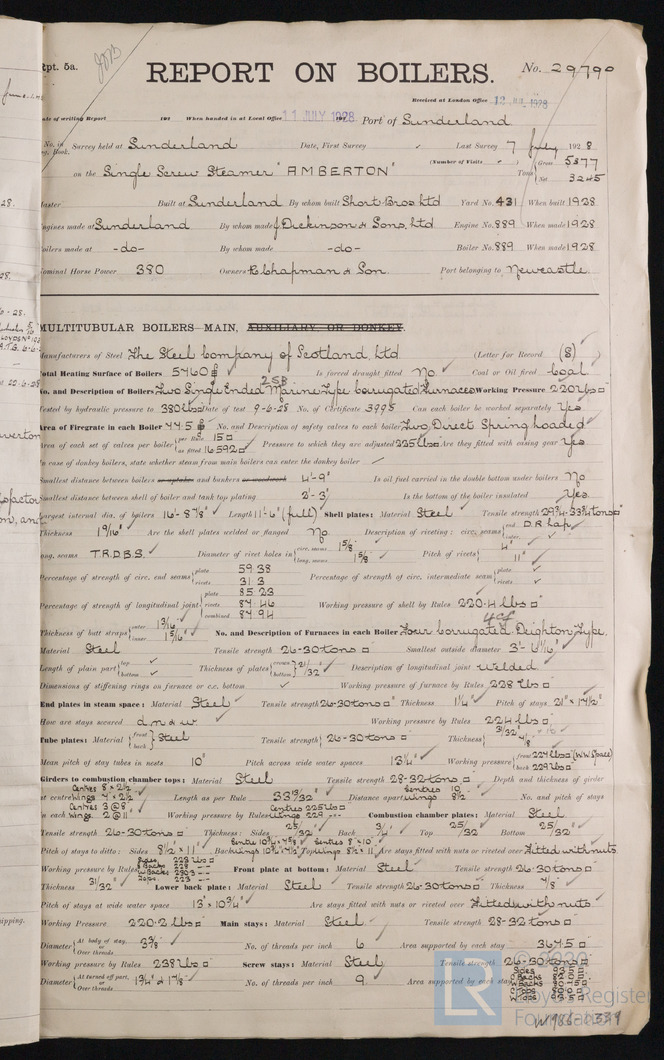 Rpt. 5a.
REPORT ON BOILERS.
No. 29790
Received at London Office 12 JUL 1928
Date of writing Report 192 When handed in at Local Office 11 JULY 1928 Port of Sunderland
No. in Reg. Book. Survey held at Sunderland Date, First Survey Last Survey 7 July 1928
(Number of Visits ) Tons Gross 5377 Net 3245
on the Single Screw Steamer "AMBERTON"
Master Built at Sunderland By whom built Short Bros Ltd Yard No. 431 When built 1928
Engines made at Sunderland By whom made J Dickinson & Sons, Ltd Engine No. 889 When made 1928
Boilers made at -do- By whom made -do- Boiler No. 889 When made 1928
Nominal Horse Power 380 Owners R. Chapman & Son. Port belonging to Newcastle.
MULTITUBULAR BOILERS MAIN, AUXILIARY OR DONKEY.
Manufacturers of Steel The Steel Company of Scotland, Ltd (Letter for Record (S) )
Total Heating Surface of Boilers 5460 Is forced draught fitted No. Coal or Oil fired Coal
2 SB
No. and Description of Boilers Two Single Ended Marine Type Corrugated Furnaces Working Pressure 220 lbs
Tested by hydraulic pressure to 380 lbs Date of test 9-6-28 No. of Certificate 3995 Can each boiler be worked separately Yes
Area of Firegrate in each Boiler 44.5 No. and Description of safety valves to each boiler Two Direct Spring loaded
Area of each set of valves per boiler per Rule 15 as fitted 16.592 Pressure to which they are adjusted 225 lbs Are they fitted with easing gear Yes
In case of donkey boilers, state whether steam from main boilers can enter the donkey boiler
Smallest distance between boilers or uptakes and bunkers or woodwork 4'-9" Is oil fuel carried in the double bottom under boilers No
Smallest distance between shell of boiler and tank top plating 2'-3" Is the bottom of the boiler insulated Yes.
Largest internal dia. of boilers 16'-8 7/8" Length 11'-6" (full) Shell plates: Material Steel Tensile strength 29 3/4-33 3/4 tons
Thickness 1 9/16" Are the shell plates welded or flanged No. Description of riveting: circ. seams end D.R. Lap. inter.
long. seams T.R.D.B.S. Diameter of rivet holes in circ. seams 1 5/8" long. seams 1 5/8" Pitch of rivets 4" 11"
Percentage of strength of circ. end seams plate 59.38 rivets 31.3 Percentage of strength of circ. intermediate seam plate rivets
Percentage of strength of longitudinal joint plate 85.23 rivets 87.46 combined 87.94 Working pressure of shell by Rules 220.4 lbs
4 cf
Thickness of butt straps outer 1 3/16" inner 1 5/16" No. and Description of Furnaces in each Boiler Four Corrugated Deighton Type.
Material Steel Tensile strength 26-30 tons Smallest outside diameter
Length of plain part top bottom Thickness of plates crown bottom 21/32" Description of longitudinal joint Welded.
Dimensions of stiffening rings on furnace or c.c. bottom Working pressure of furnace by Rules 228 lbs
End plates in steam space: Material Steel Tensile strength 26-30 tons Thickness 1 1/4" Pitch of stays 21" x 17 1/2"
How are stays secured d.n & w. Working pressure by Rules 224 lbs
Tube plates: Material front back Steel Tensile strength 26-30 tons Thickness
Mean pitch of stay tubes in nests 10" Pitch across wide water spaces 13 1/4" Working pressure front 227 lbs (W.W. Space) back 229 lbs
Girders to combustion chamber tops: Material Steel Tensile strength 28-32 tons Depth and thickness of girder
at centre Centres 8 x 2 1/2 Wings 7 x 2 1/2 Length as per Rule 33 13/32" Distance apart Centres 10 Wings 8 1/2 No. and pitch of stays
in each Centres 3 @ 8 Wings. 2 @ 11 Working pressure by Rules Centres 225 lbs Wings 229 Combustion chamber plates: Material Steel
Tensile strength 26-30 tons Thickness: Sides 25/32" Back 3/4" Top 25/32" Bottom 25/32"
Pitch of stays to ditto: Sides 8 1/2 x 11" Back Top Are stays fitted with nuts or riveted over Fitted with nuts
Working pressure by Rules Sides 228 lbs Front plate at bottom: Material Steel Tensile strength 26-30 tons
Thickness 31/32" Lower back plate: Material Steel Tensile strength 26-30 tons Thickness 7/8"
Pitch of stays at wide water space 13" x 10 3/4" Are stays fitted with nuts or riveted over Fitted with nuts
Working Pressure 220.2 lbs Main stays: Material Steel. Tensile strength 28-32 tons
Diameter At body of stay, or Over threads 3 3/8" No. of threads per inch 6 Area supported by each stay 367.5
Working pressure by Rules 238 lbs Screw stays: Material Steel Tensile strength 26-30 tons
Diameter At turned off part, or Over threads 1 3/4" & 1 7/8" No. of threads per inch 9 Area supported by each stay
LR
© 2020
Lloyd's Register
Foundation
W986-0339